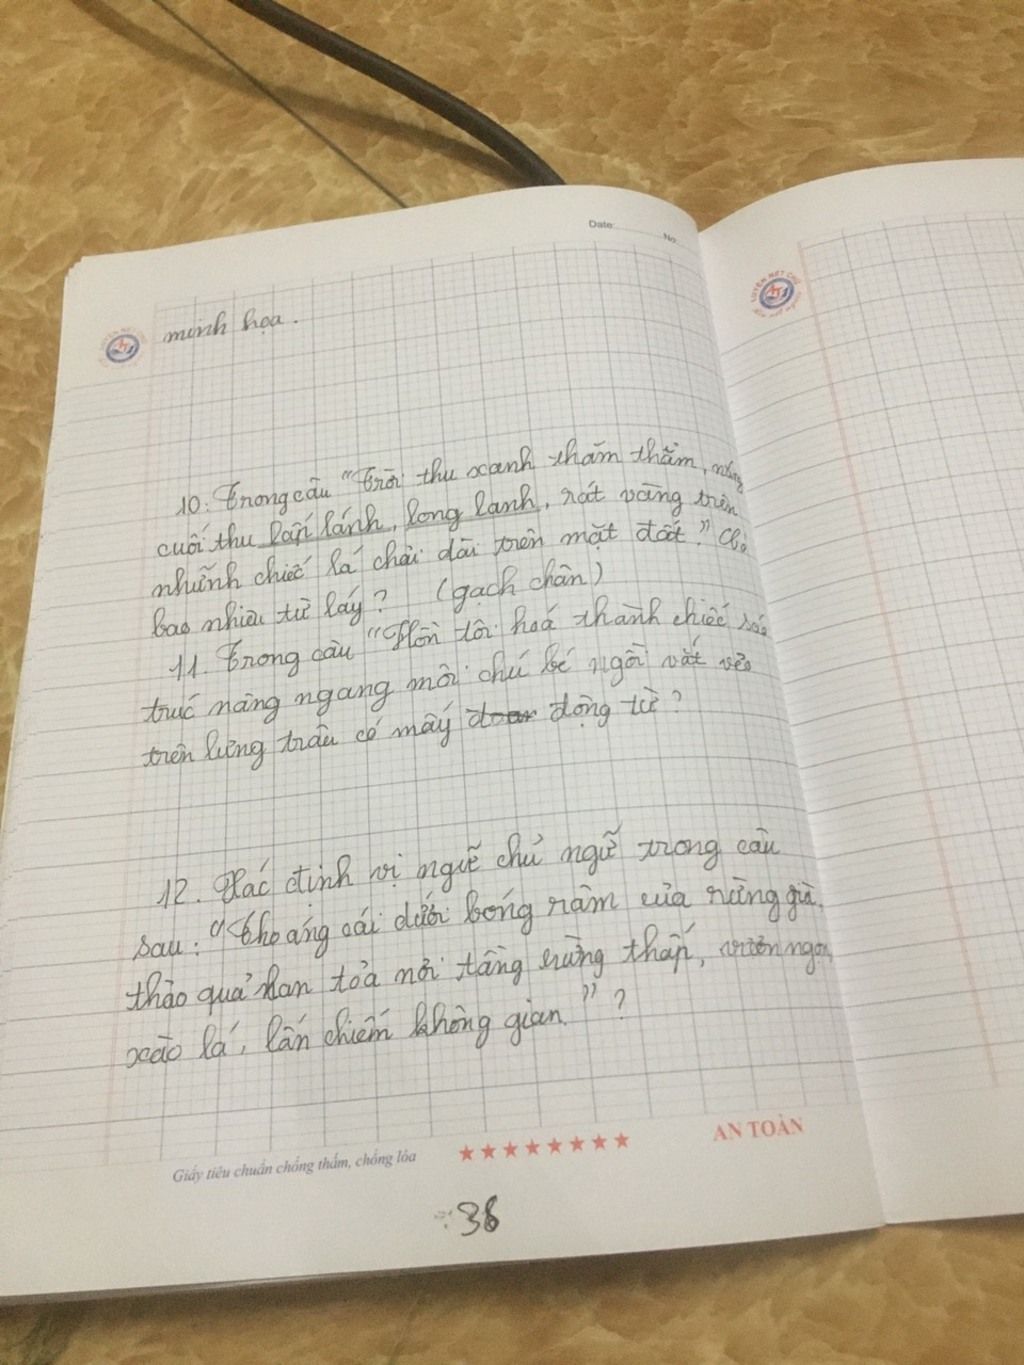 Date: No:
minh họa.
10: Trong câu "Trời thu xanh thăm thẳm, nắng
cuối thu lấp lánh, long lanh, rát vàng trên
nhưnh chiếc lá chải dài trên mặt đất." Có
bao nhiêu từ láy? (gạch chân)
11. Trong câu "Hồn tôi hoá thành chiếc sáo
trúc nâng ngang môi chú bé ngồi vắt vẻo
trên lưng trâu có mấy động từ?
12. Xác định vị ngữ chủ ngữ trong câu
sau: "Thoáng cái dưới bóng râm của rừng già,
thảo quả lan tỏa nơi tầng rừng thấp, vươn ngọn,
xào lá, lấn chiếm không gian." ?
Giấy tiêu chuẩn chống thấm, chống lóa
AN TOÀN
36